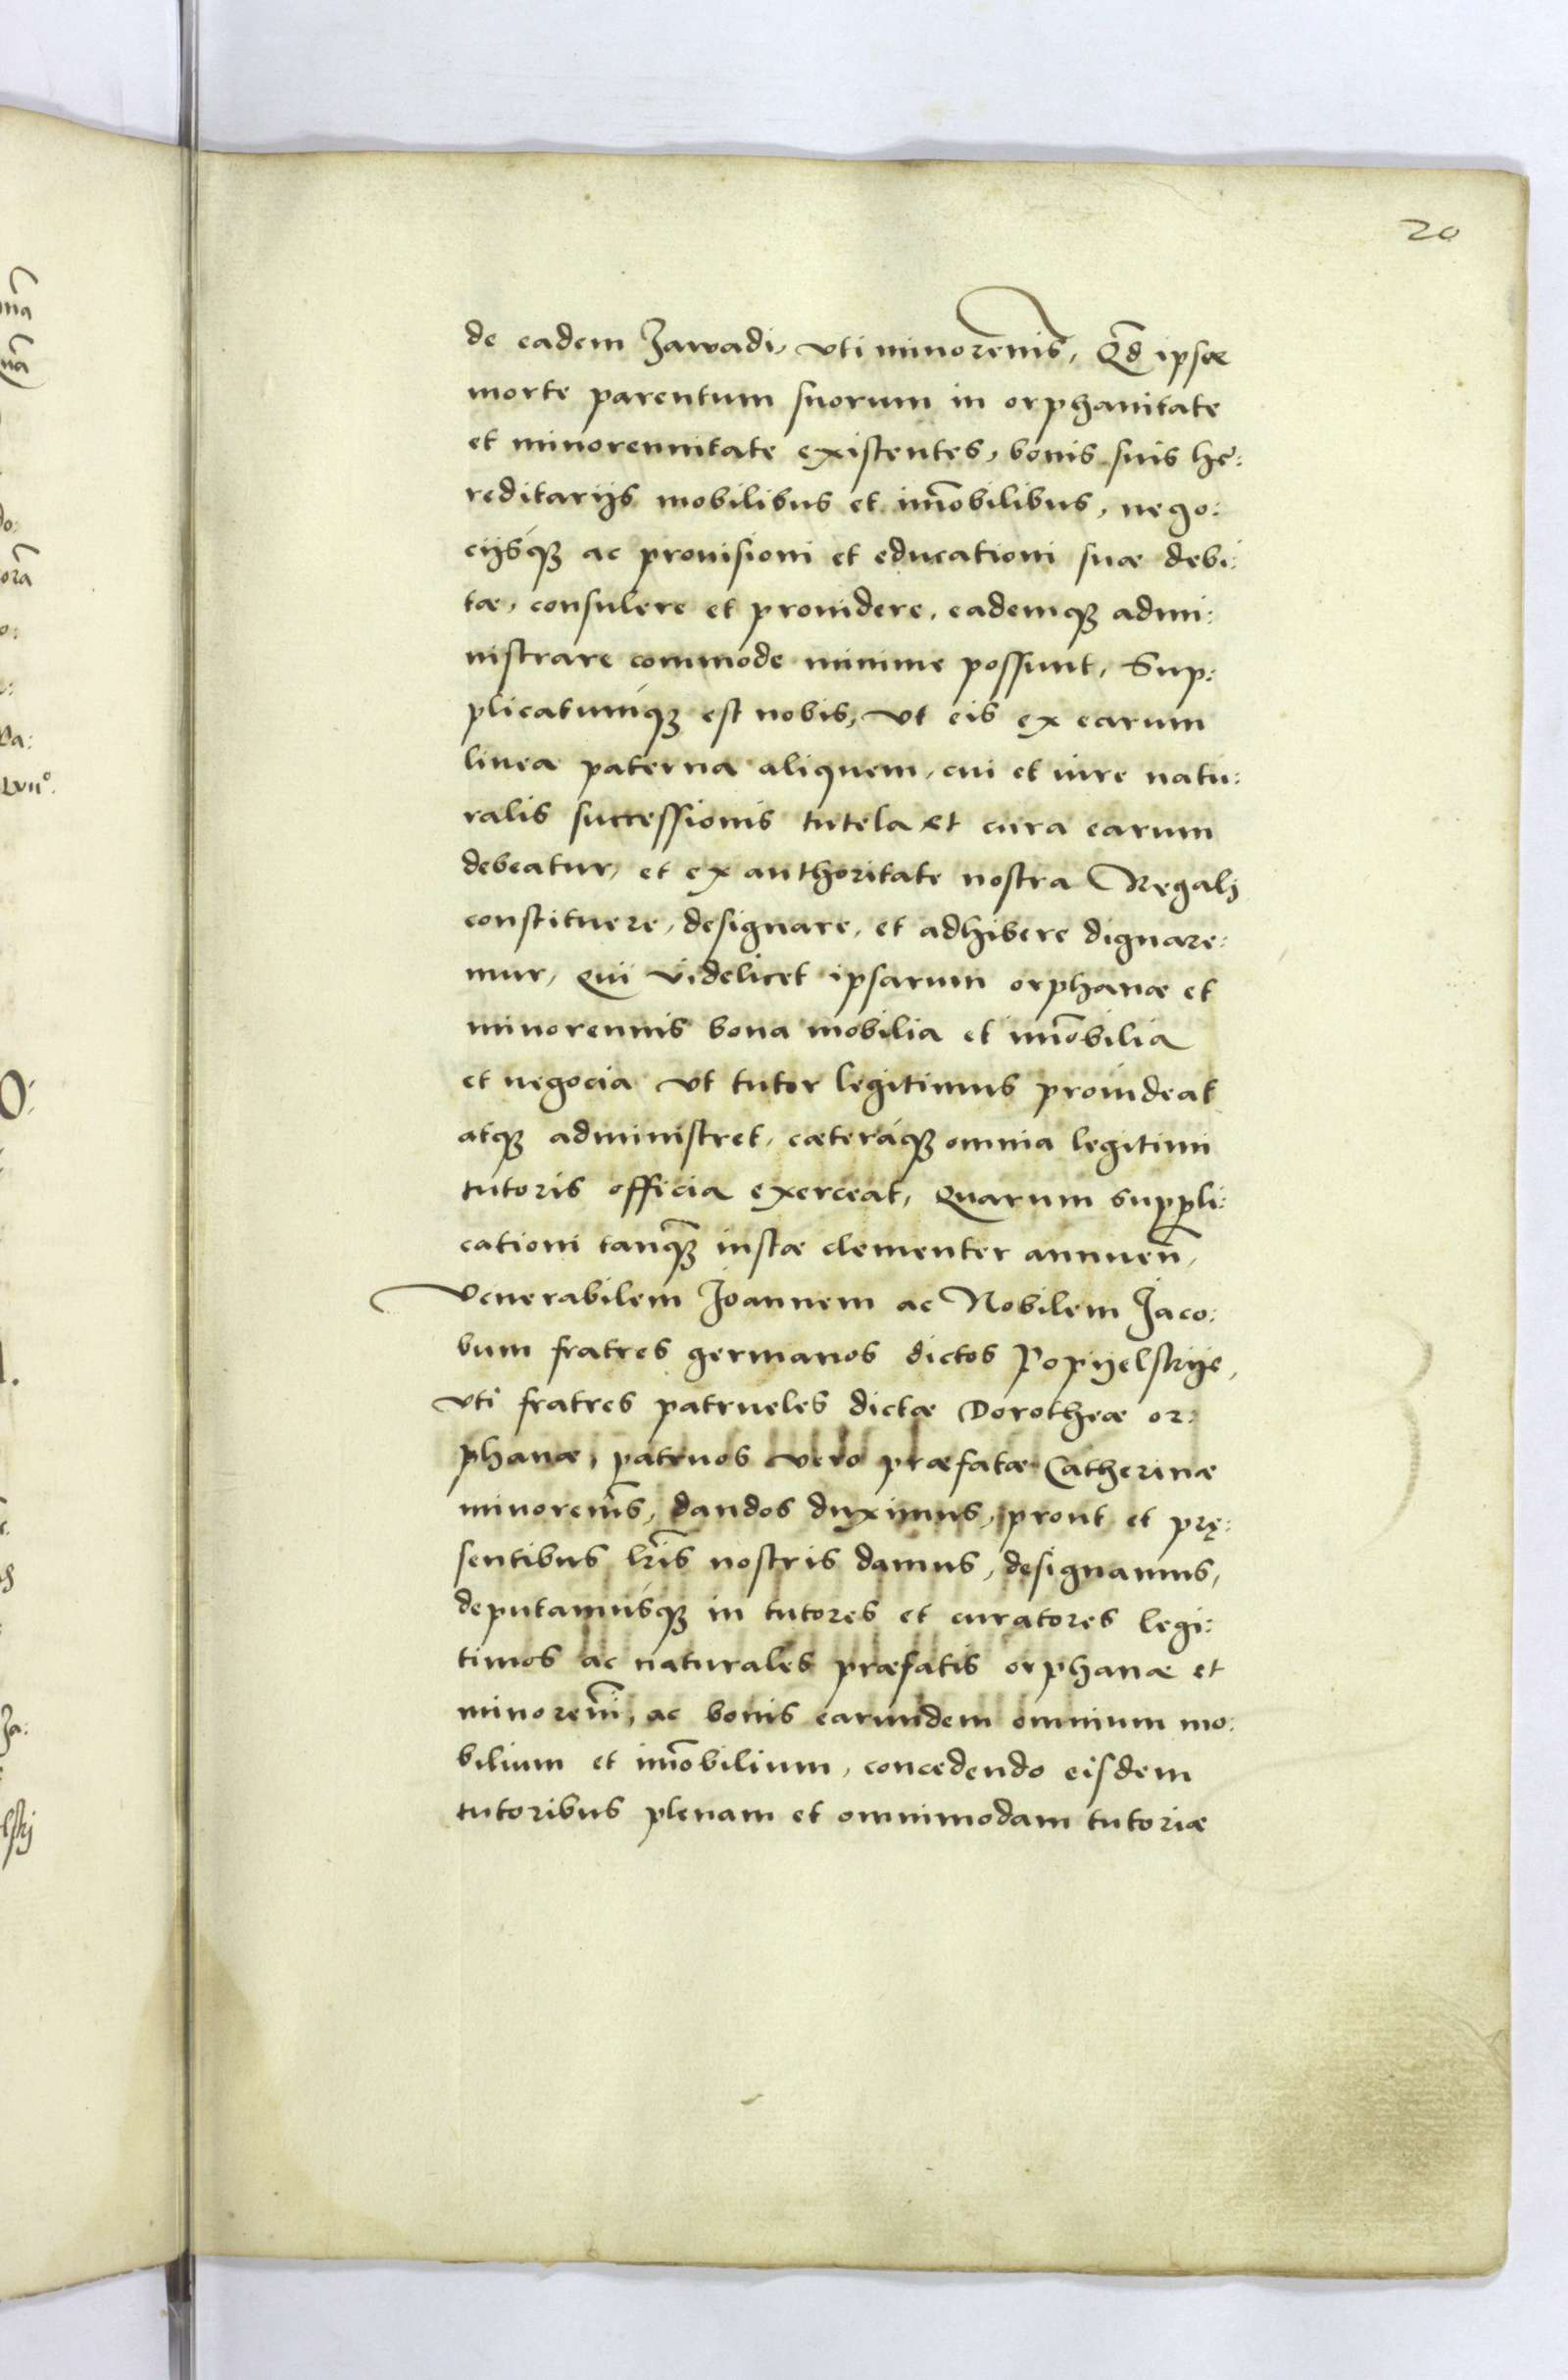 20
de eadem Zawadi, vti minoreñis, Qd̃ ipsæ
morte parentum suorum in orphanitate
et minorennitate existentes, bonis suis he:
reditarijs mobilibus et im̃obilibus, nego:
cijsq₃ ac prouisioni et educationi suæ debi:
tæ, consulere et prouidere, eademq₃ admi:
nistrare commode minime possunt, Sup:
plicatumq₃ est nobis, vt eis ex earum
linea paterna aliquem, cui et iure natu:
ralis successionis tutela et cura earum
debeatur, et ex authoritate nostra Regalj
constituere, designare, et adhibere dignare:
mur, qui videlicet ipsarum orphanæ et
minorennis bona mobilia et im̃obilia
et negocia vt tutor legitimus prouideat
atq₃ administret, cæteráq₃ omnia legitimi
tutoris officia exerceat, Quarum suppli:
cationi tanq̃₃ iustæ clementer annueñ,
Venerabilem Joannem ac Nobilem Jaco:
bum fratres germanos dictos Popijelskije,
vti fratres patrueles dictæ Dorotheæ or:
phanæ, patruos vero præfatæ Catherinæ
minoreñis, dandos duximus, prout et prę:
sentibus lr̃is nostris damus, designamus,
deputamúsq₃ in tutores et curatores legi:
timos ac naturales præfatis orphanæ et
minoreñi, ac bonis earundem omnium mo:
bilium et im̃obilium, concedendo eisdem
tutoribus plenam et omnimodam tutoriæ